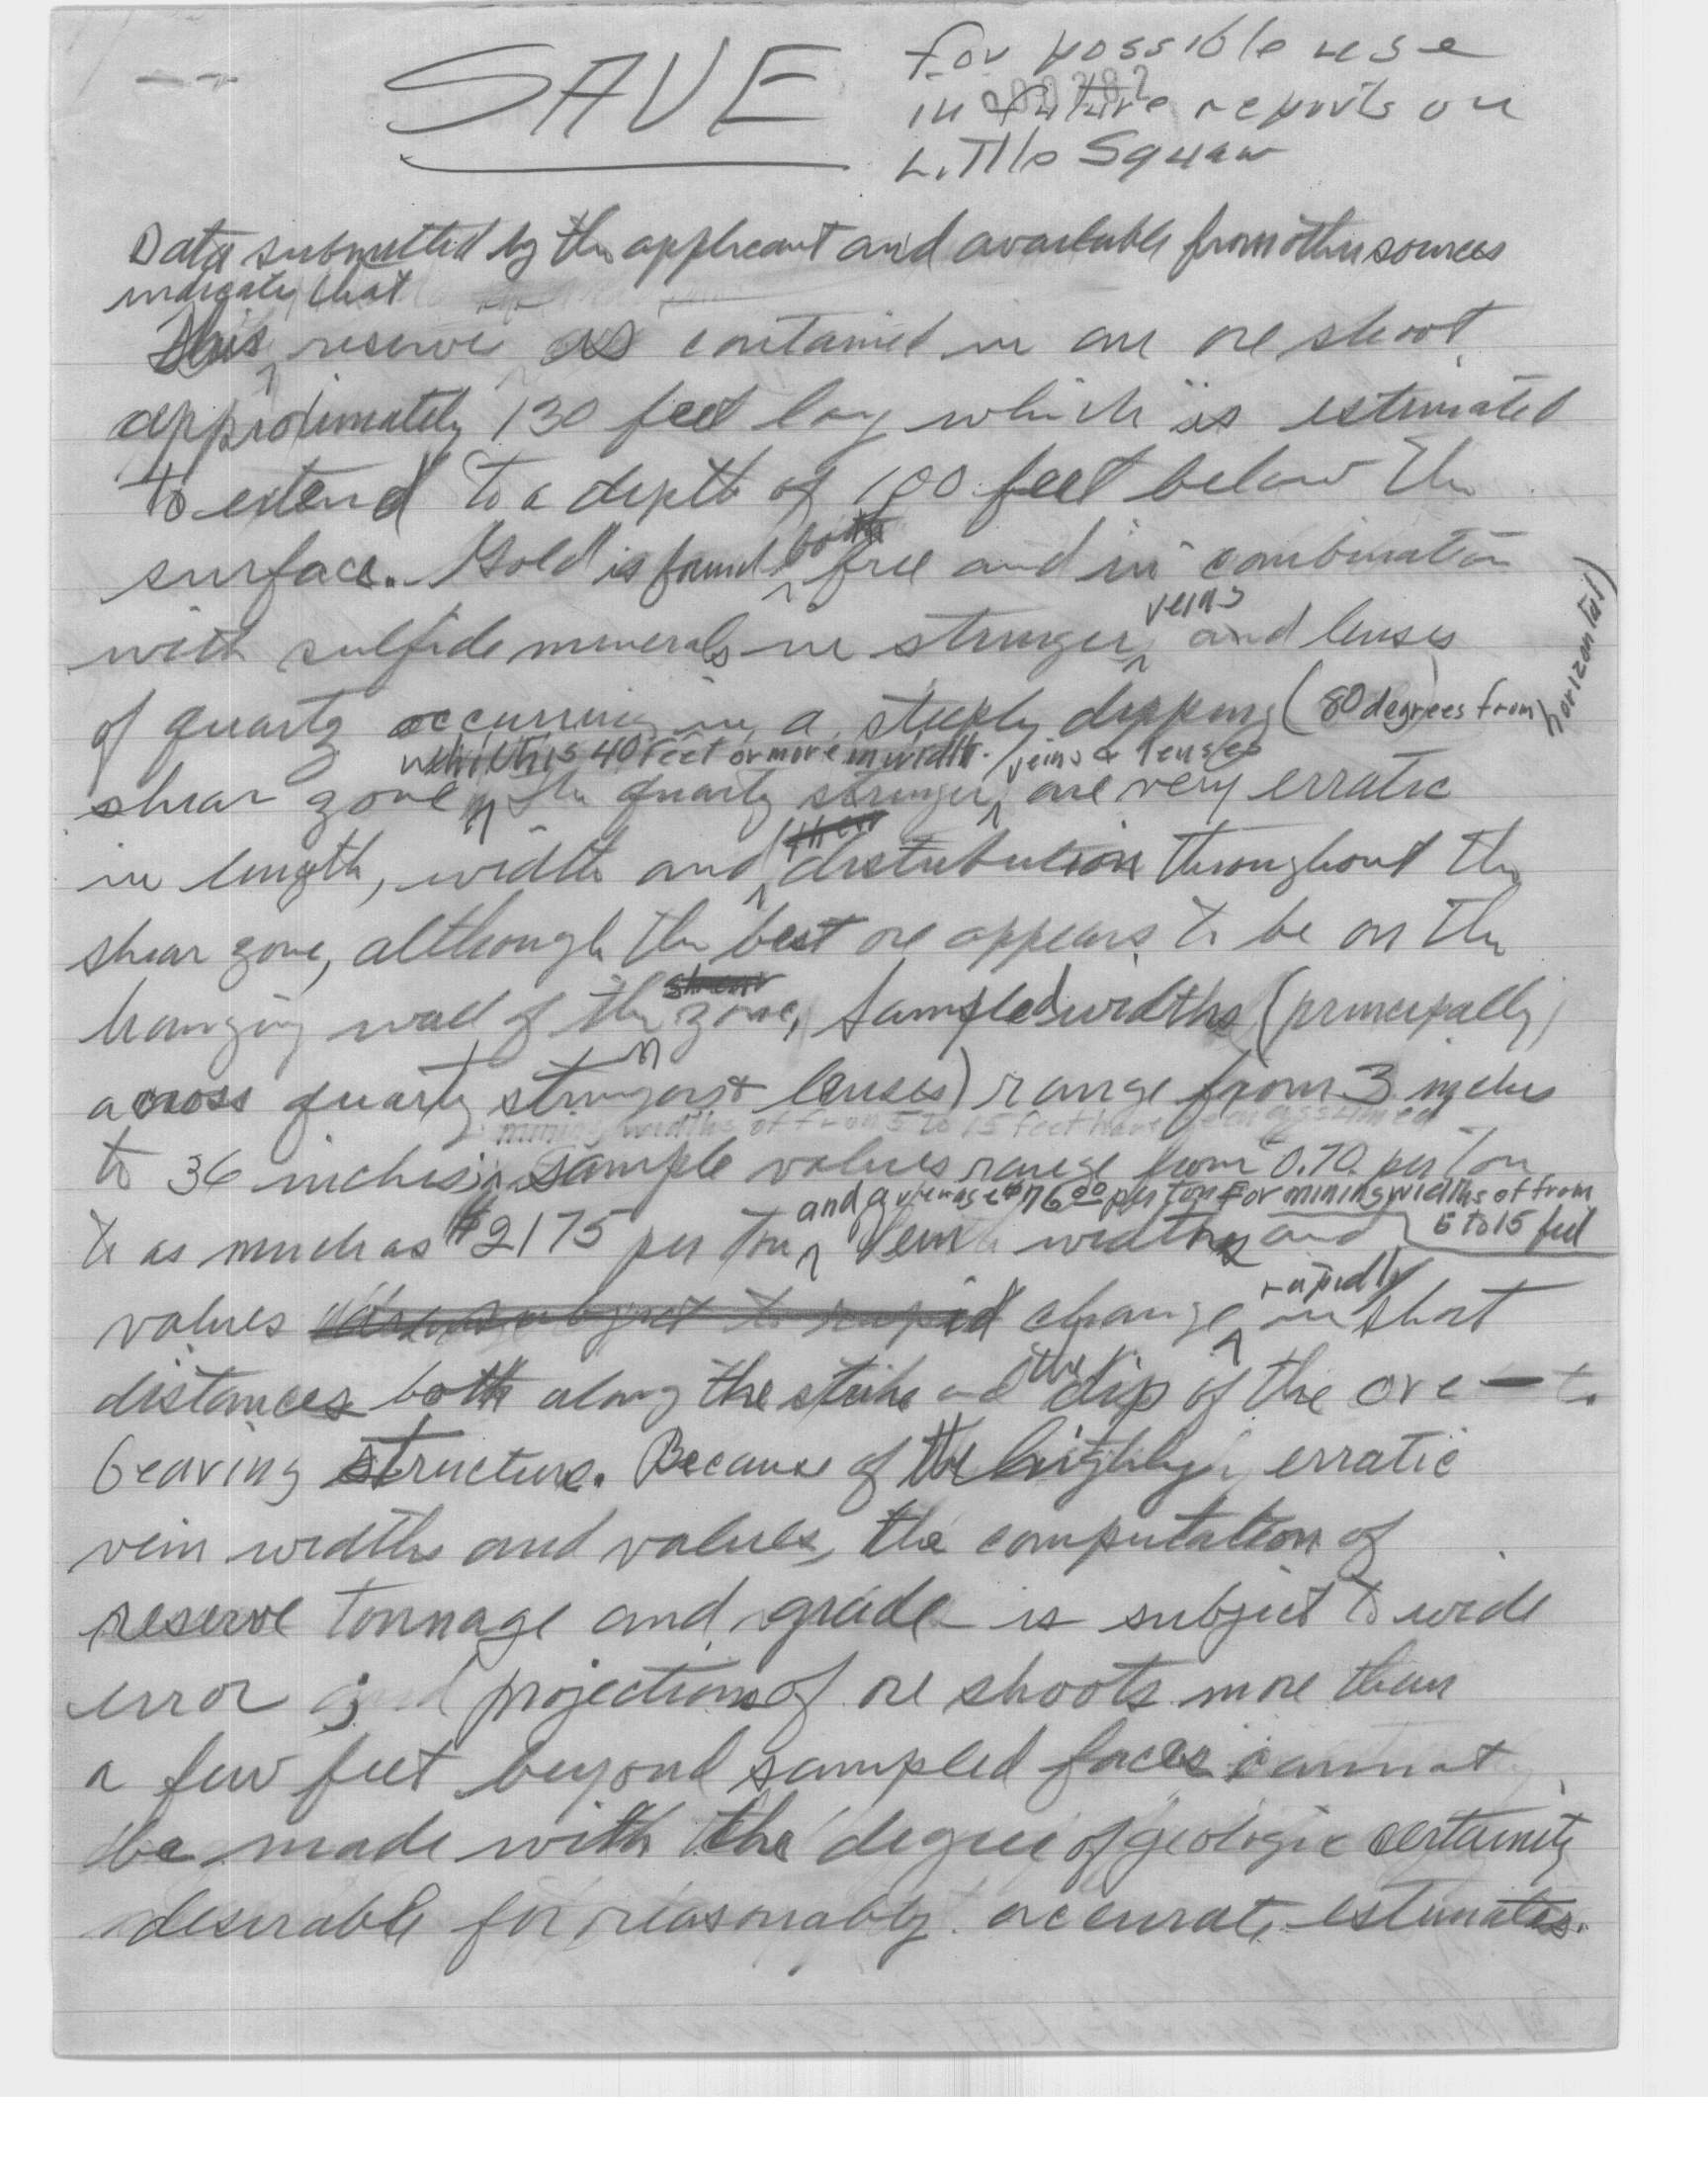 SAVE
for possible use
in future reports on
Little Squaw
Data submitted by the applicant and available from other sources
indicate that
this reserve is contained in one ore shoot
approximately 130 feet long which is estimated
to extend to a depth of 100 feet below the
surface. Gold is found both free and in combination
with sulfide minerals in stringer veins and lenses
of quartz occurring in a steeply dipping (80 degrees from horizontal)
which is 40 feet or more in width. veins & lenses
shear zone the quartz stringer are very erratic
in length, width and their distribution throughout the
shear zone, although the best ore appears to be on the
hanging wall of the shear zone, Sampled widths (principally
across quartz stringers & lenses) range from 3 inches
mining widths of from 5 to 15 feet have been assumed
to 36 inches; sample values range from 0.70 per ton
and average $76.00 per ton for mining widths of from
5 to 15 feet
to as much as $2175 per ton, Vein widths and
values are subject to rapid change rapidly in short
distances both along the strike and the dip of the ore-
bearing structure. Because of the highly erratic
vein widths and values, the computation of
reserve tonnage and grade is subject to wide
error ; projections of ore shoots more than
a few feet beyond sampled faces cannot
be made with the degree of geologic certainty
desirable for reasonably accurate estimates.